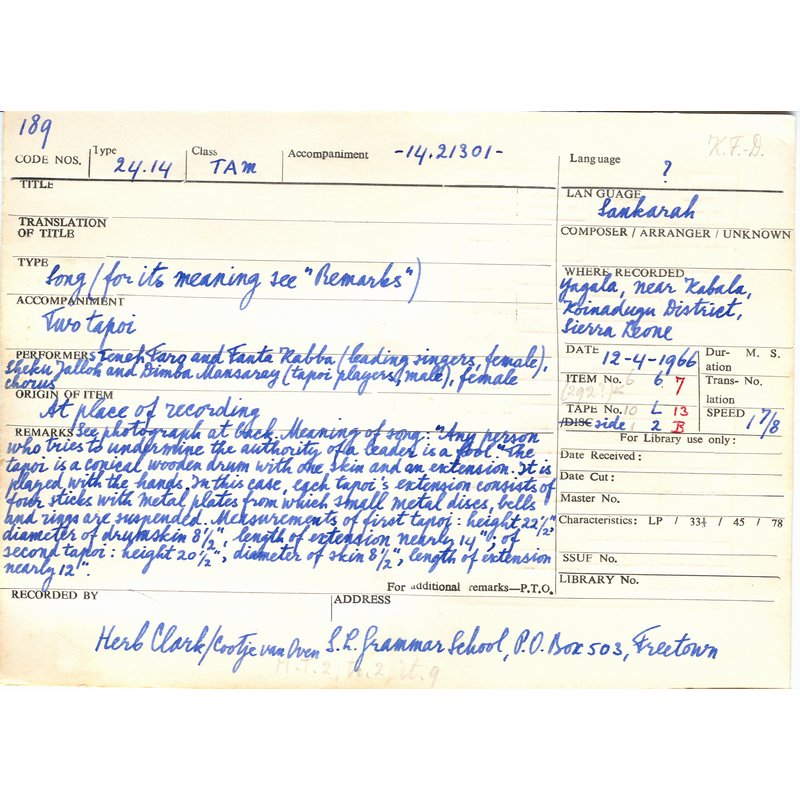 189
K.F.-D.
CODE NOS.
Type 24.14
Class TAM
Accompaniment -14.21301-
Language ?
TITLE
LANGUAGE
Sankarah
TRANSLATION
OF TITLE
COMPOSER / ARRANGER / UNKNOWN
TYPE
Song (for its meaning see "Remarks")
WHERE RECORDED
Yagala, near Kabala,
Koinadugu District,
Sierra Leone
ACCOMPANIMENT
Two tapoi
PERFORMERS Teneh Faro and Fanta Kabba (leading singers, female),
Sheku Jalloh and Dimba Mansaray (tapoi players, male), female
chorus
DATE 12-4-1966
Duration M. S.
ITEM No. 6 6 7
(292?)
Translation No.
ORIGIN OF ITEM
At place of recording
TAPE No. 10 L 13
/DISC side 1 2 B
SPEED 1 7/8
REMARKS See photograph at back. Meaning of song: "Any person
who tries to undermine the authority of a leader is a fool." The
tapoi is a conical wooden drum with one skin and an extension. It is
played with the hands. In this case, each tapoi's extension consists of
four sticks with metal plates from which small metal discs, bells
and rings are suspended. Measurements of first tapoi: height 22½",
diameter of drumskin 8½", length of extension nearly 14"; of
second tapoi: height 20½", diameter of skin 8½", length of extension
nearly 12".
For Library use only:
Date Received:
Date Cut:
Master No.
Characteristics: LP / 33⅓ / 45 / 78
SSUF No.
LIBRARY No.
For additional remarks—P.T.O.
RECORDED BY
ADDRESS
Herb Clark/Cootje van Oven S.L. Grammar School, P.O. Box 503, Freetown
M.T.2, tr.2, it.9